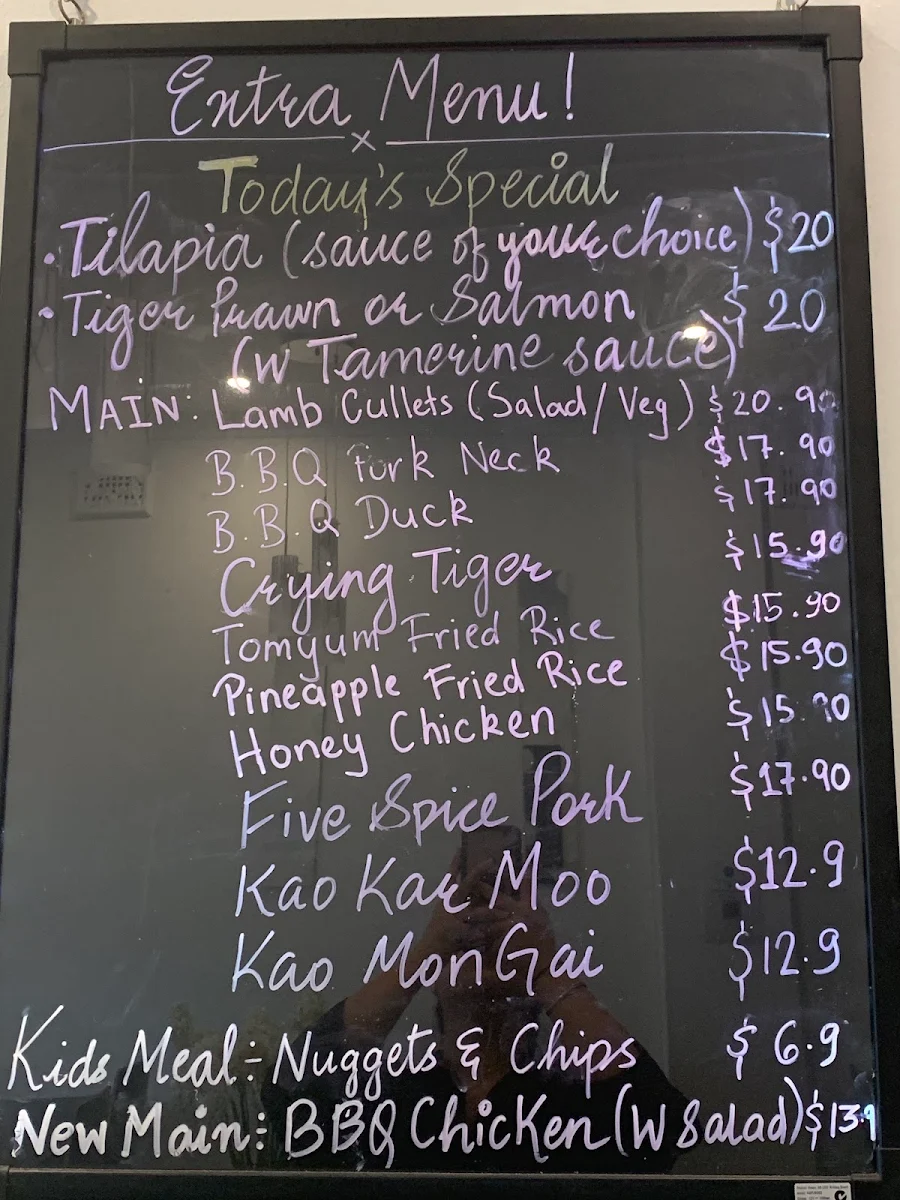 Extra Menu!
x
Today's Special
• Tilapia (sauce of your choice) $20
• Tiger Prawn or Salmon $20
(w Tamerine sauce)
MAIN: Lamb Cullets (Salad/Veg) $20.90
B.B.Q Pork Neck $17.90
B.B.Q Duck $17.90
Crying Tiger $15.90
Tomyum Fried Rice $15.90
Pineapple Fried Rice $15.90
Honey Chicken $15.90
Five Spice Pork $17.90
Kao Kar Moo $12.9
Kao Mon Gai $12.9
Kids Meal:- Nuggets & Chips $6.9
New Main: BBQ Chicken (W Salad) $13.9